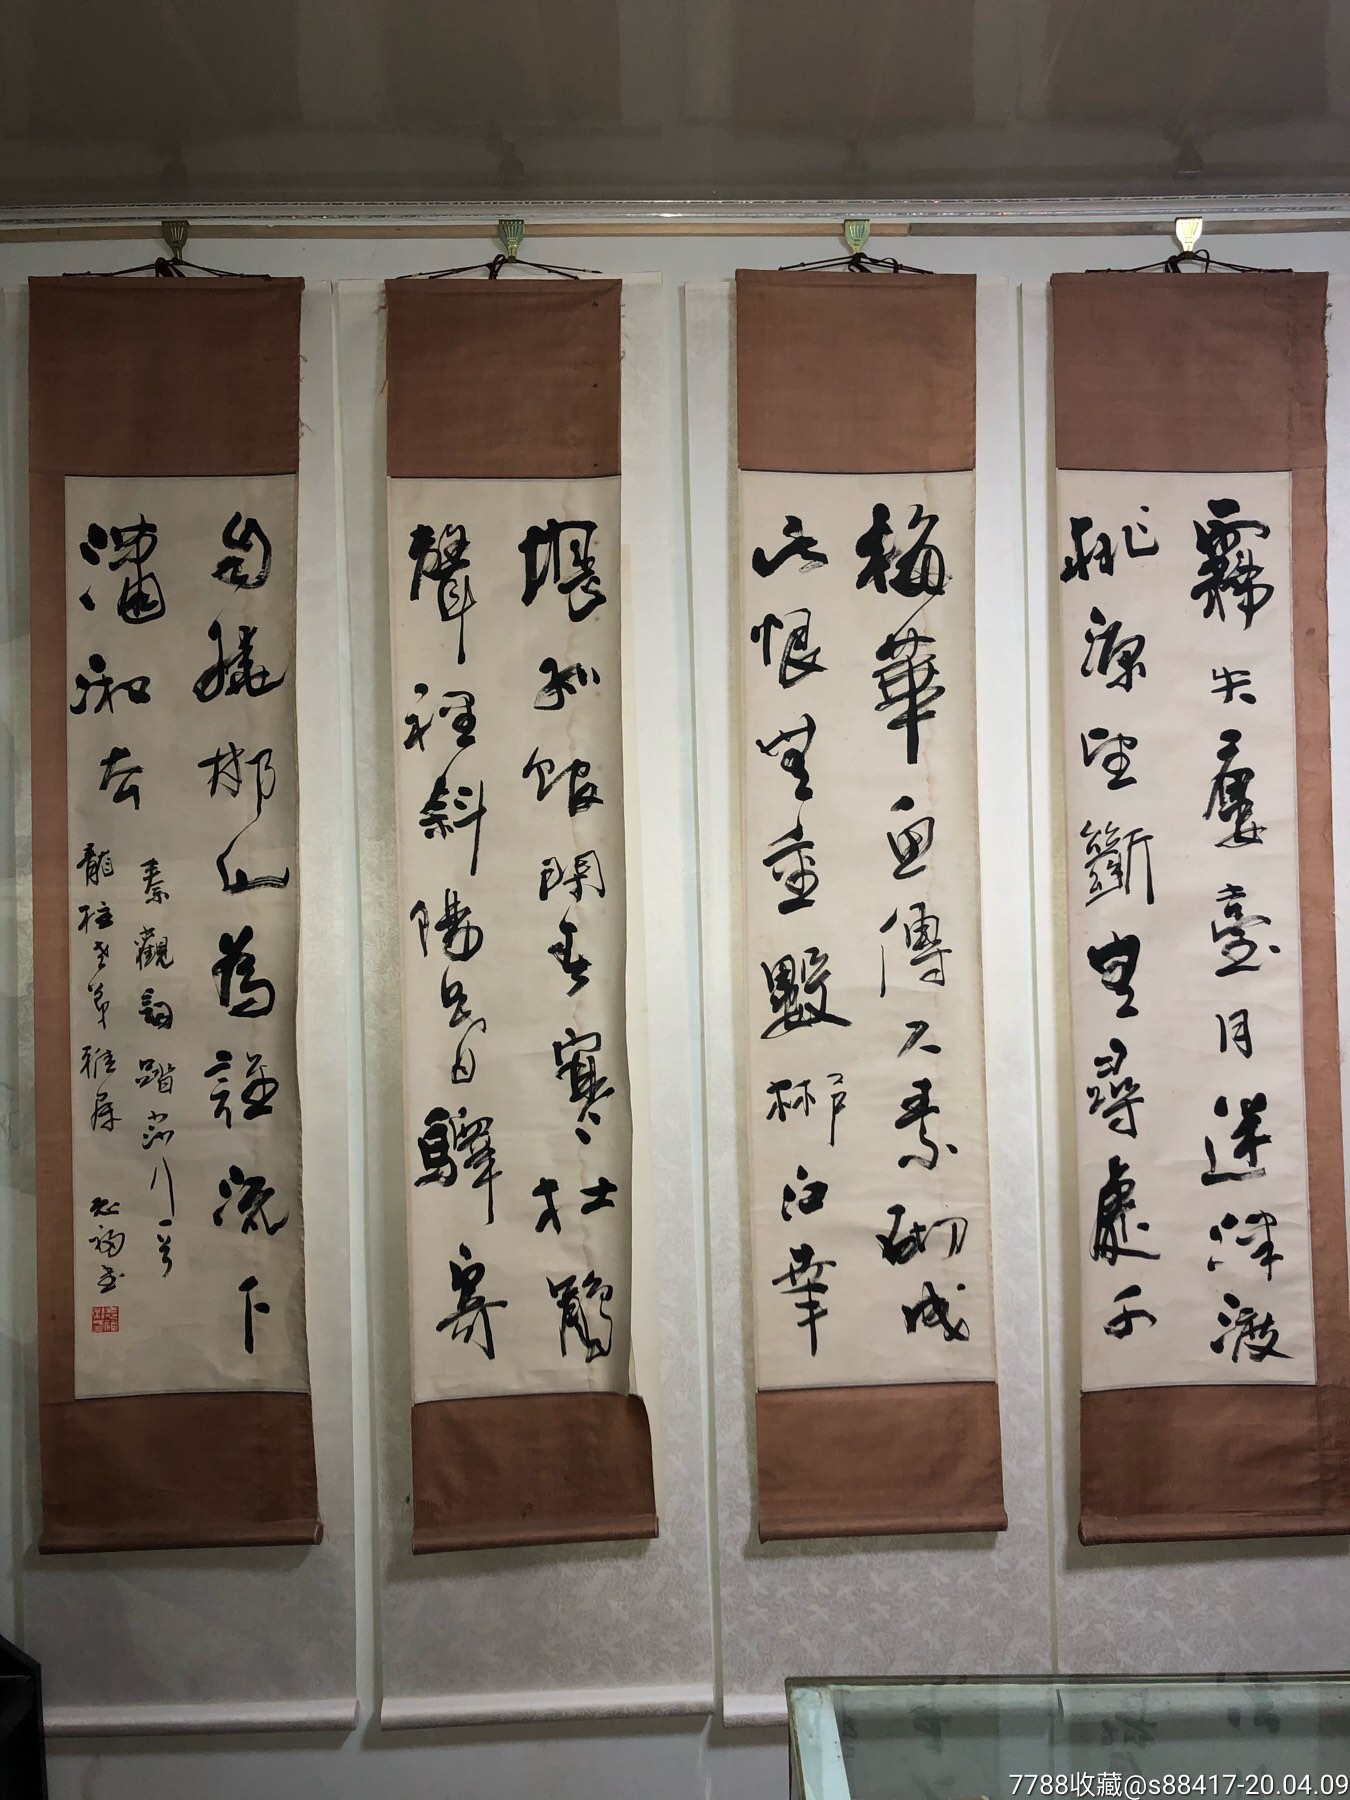 霧失廔臺月迷津渡
桃源望斷無尋處可
梅華魚傳尺素砌成
此恨無重數郴江幸
堪孤館閉春寒杜鵑
聲裡斜陽暮驛寄
自繞郴山為誰流下
瀟湘去
秦觀詞踏莎行一首
龍柱老弟雅屬
7788收藏@s88417-20.04.09